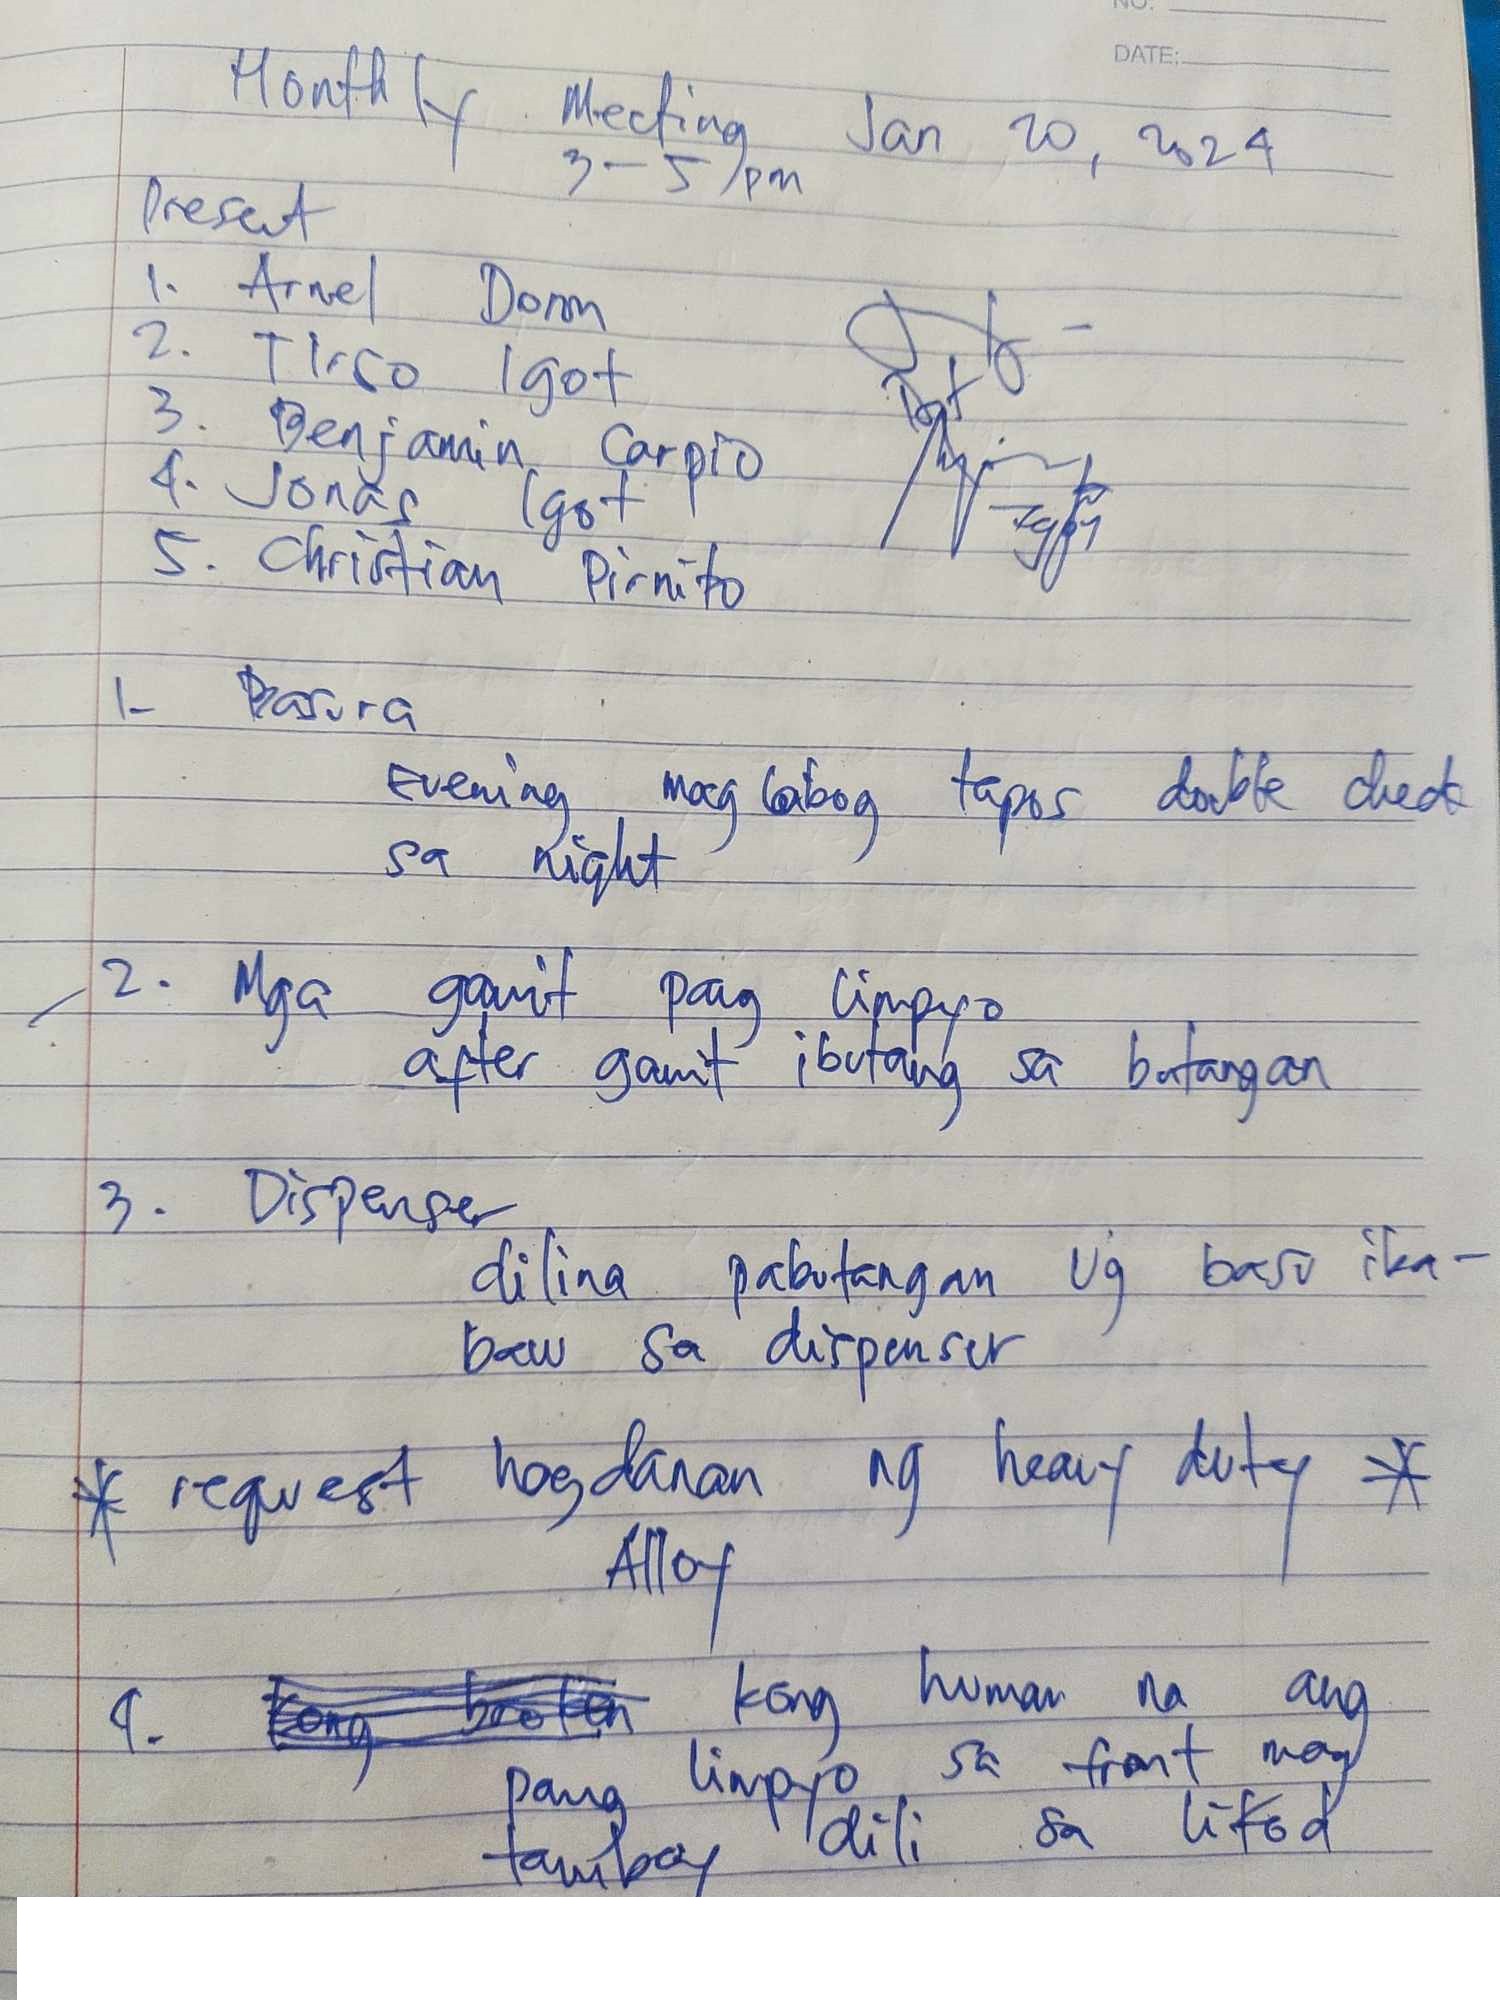 NO.
DATE:
Monthly Meeting Jan 20, 2024
3-5 pm
Present
1. Arnel Doron
2. Tirso Igot
3. Benjamin Carpio
4. Jonas Igot
5. Christian Pirnito
1- Basura
Evening mag labog tapos double check
sa night
2. Mga gamit pang limpyo
after gamit ibutang sa butangan
3. Dispenser
dilina pabutangan ug baso ika-
baw sa dispenser
* request hagdanan ng heavy duty *
Alloy
4. kong human na ang
pang limpyo sa front mag
tambay dili sa likod